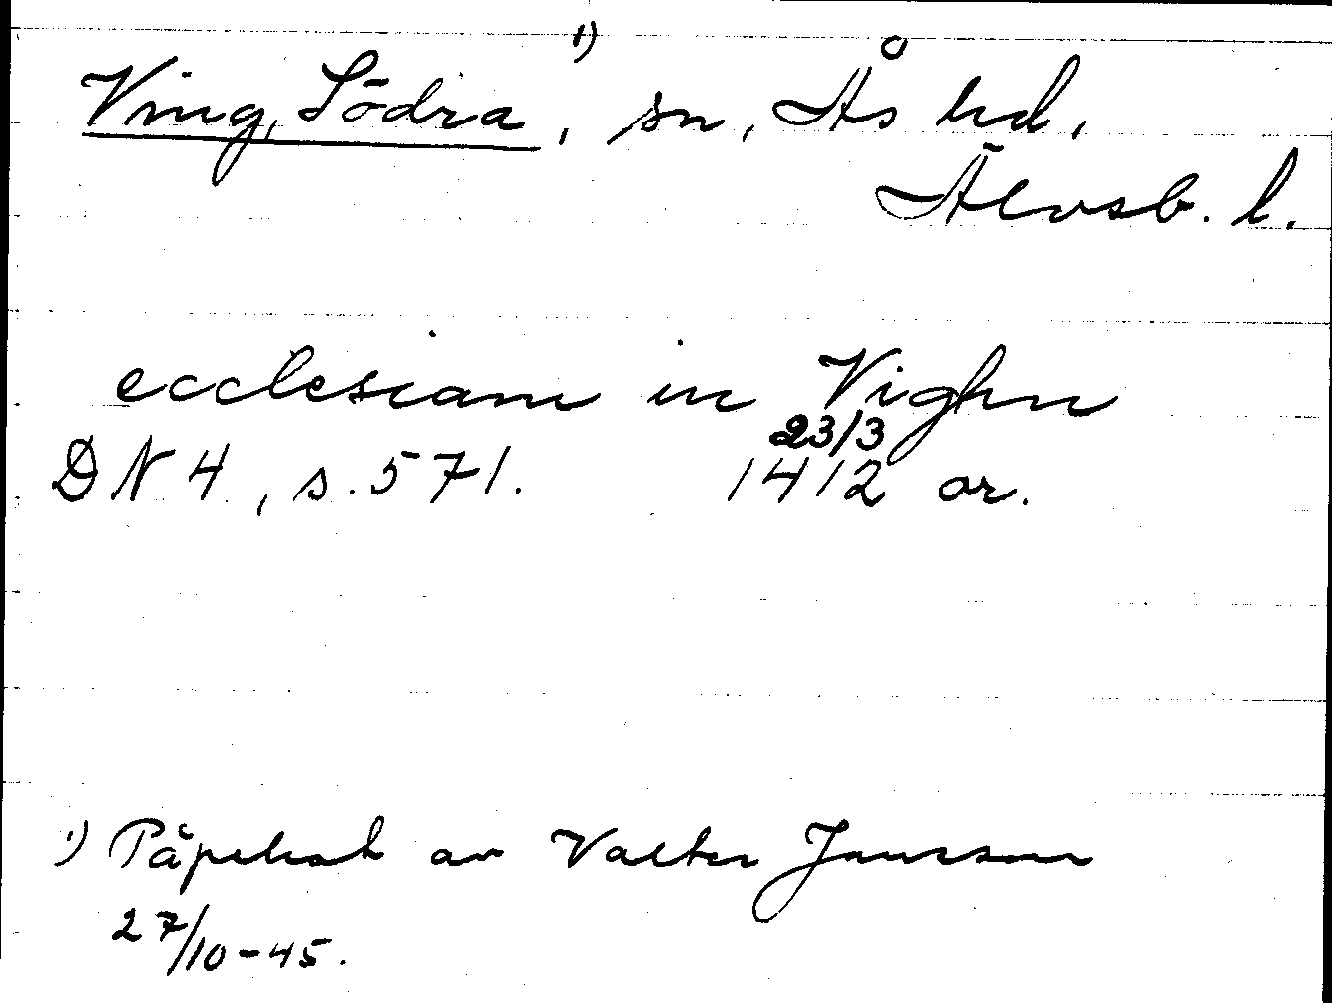 Ving, Södra ¹⁾, sn, Ås hd,
Älvsb. l.
ecclesiam in Vighn
23/3
DN 4, s. 571. 1412 or.
¹⁾ Påpekat av Valter Jansson
27/10-45.